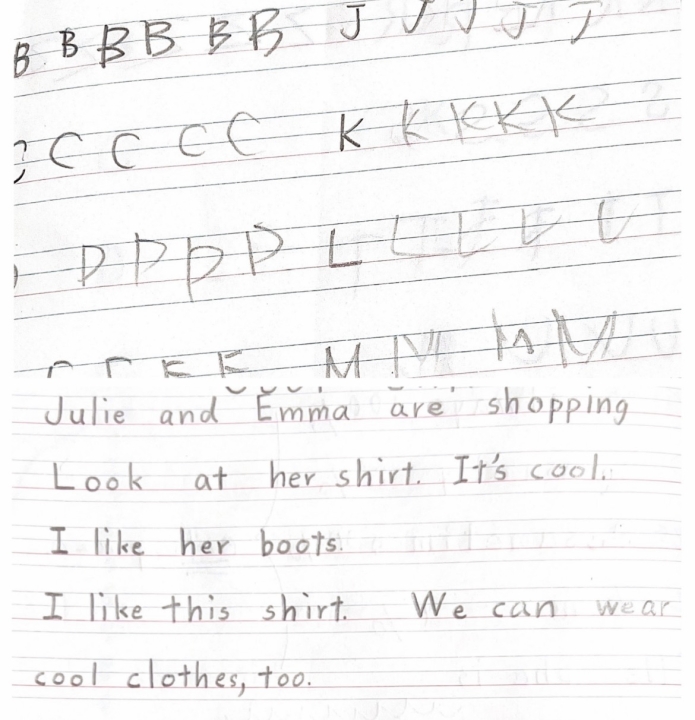 B B B B B B J J J J J
C C C C C K K K K K
D D D D L L L L L
E E M M M M
Julie and Emma are shopping
Look at her shirt. It's cool.
I like her boots.
I like this shirt. We can wear
cool clothes, too.